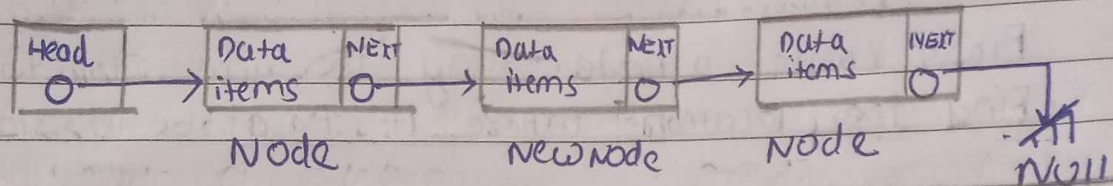 Head
Data items
NEXT
Data items
NEXT
Data items
NEXT
Node
NewNode
Node
NUll